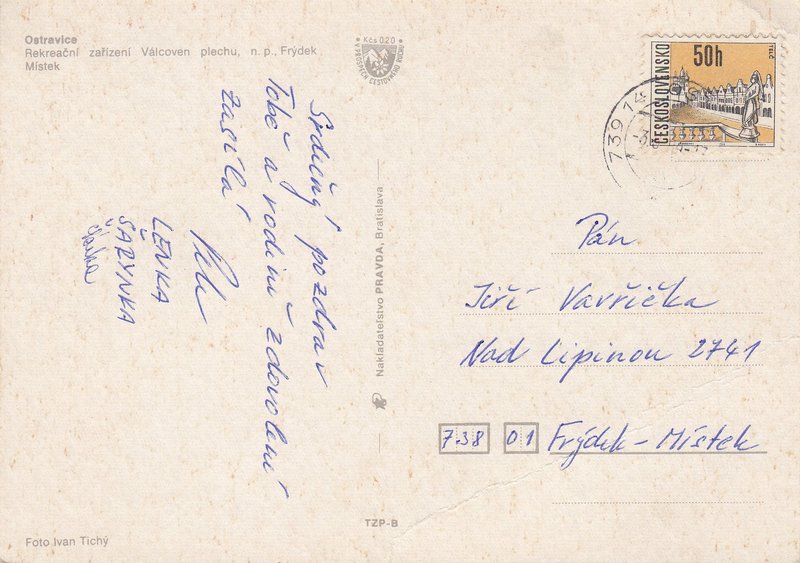 Ostravice
Rekreační zařízení Válcoven plechu, n. p., Frýdek
Místek
Kčs 0,20
V PROSPĚCH CESTOVNÍHO RUCHU
ČESKOSLOVENSKO
50h
TELČ
739 14
Srdečný pozdrav
Tobě a rodině z dovolené
zasílá
LENKA
ŠARYNKA
Nakladatelstvo PRAVDA, Bratislava
Pán
Jiří Vavřička
Nad Lipinou 2741
738 01 Frýdek-Místek
TZP-B
Foto Ivan Tichý